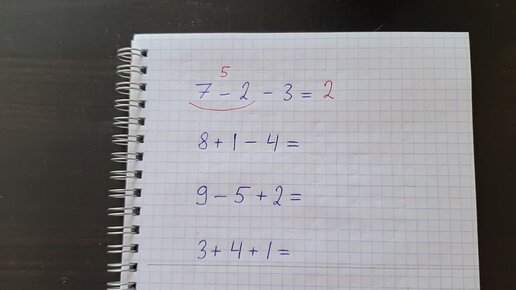 5
7 - 2 - 3 = 2
8 + 1 - 4 =
9 - 5 + 2 =
3 + 4 + 1 =